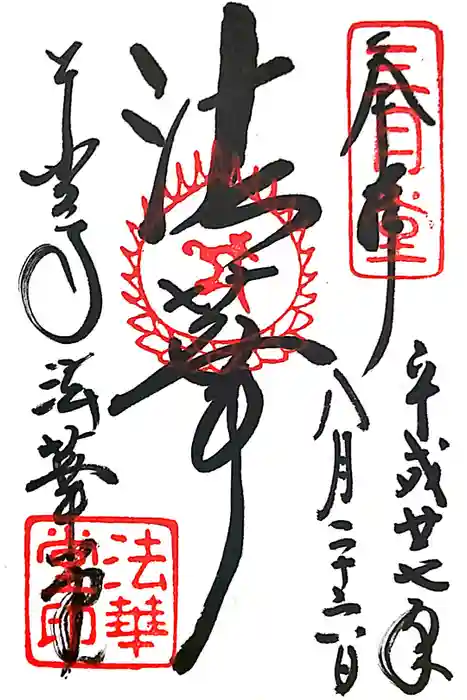 奉拝
三月堂
平成廿七年
八月二十六日
法華
法華堂
法華堂印